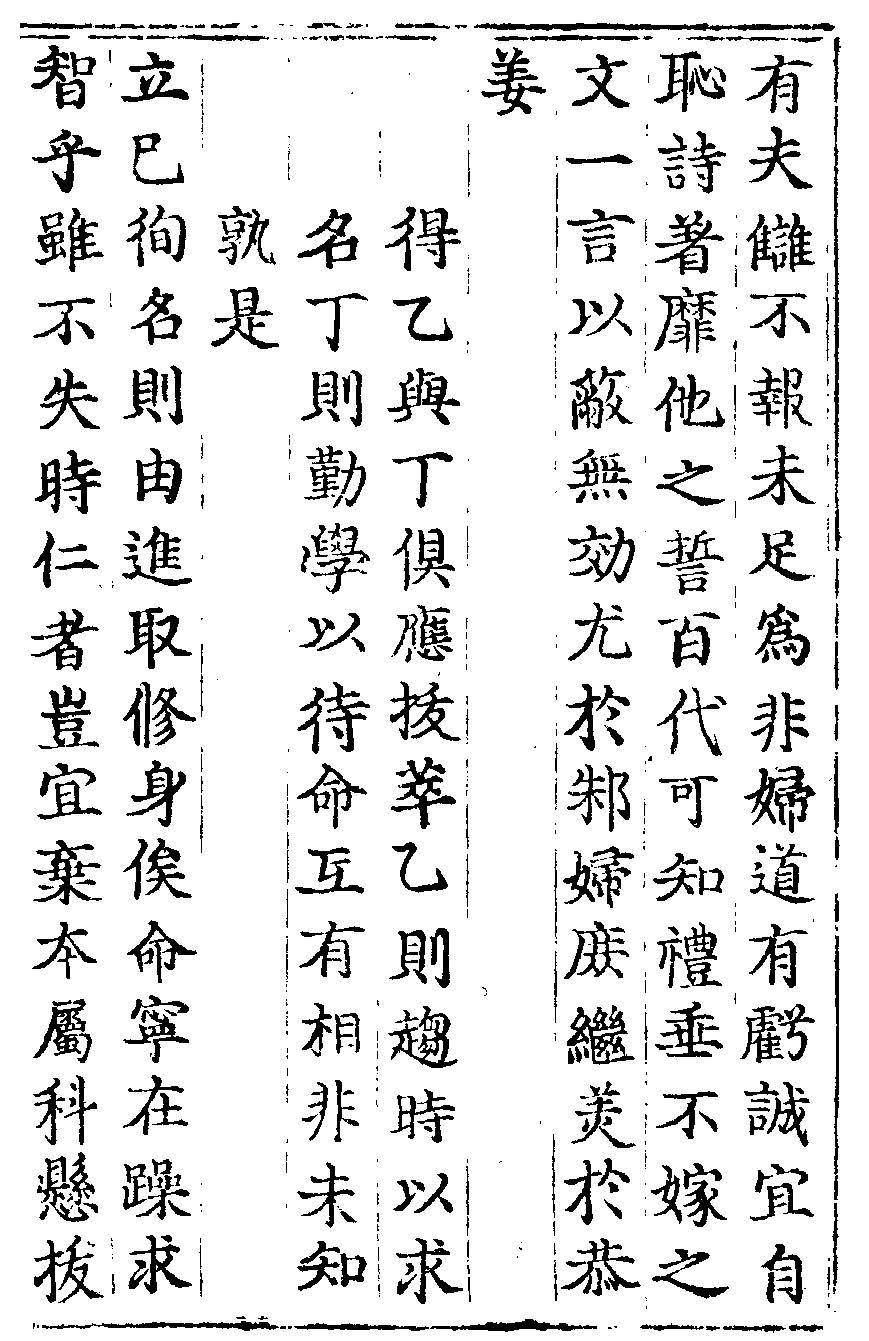 有夫讎不報未足爲非婦道有虧誠宜自
恥詩著靡他之誓百代可知禮垂不嫁之
文一言以蔽無効尤於邾婦庶継美於恭
姜
得乙與丁俱應拔萃乙則趨時以求
名丁則勤學以待命互有相非未知
孰是
立已徇名則由進取修身俟命寧在躁求
智乎雖不失時仁者豈宜棄本屬科懸拔